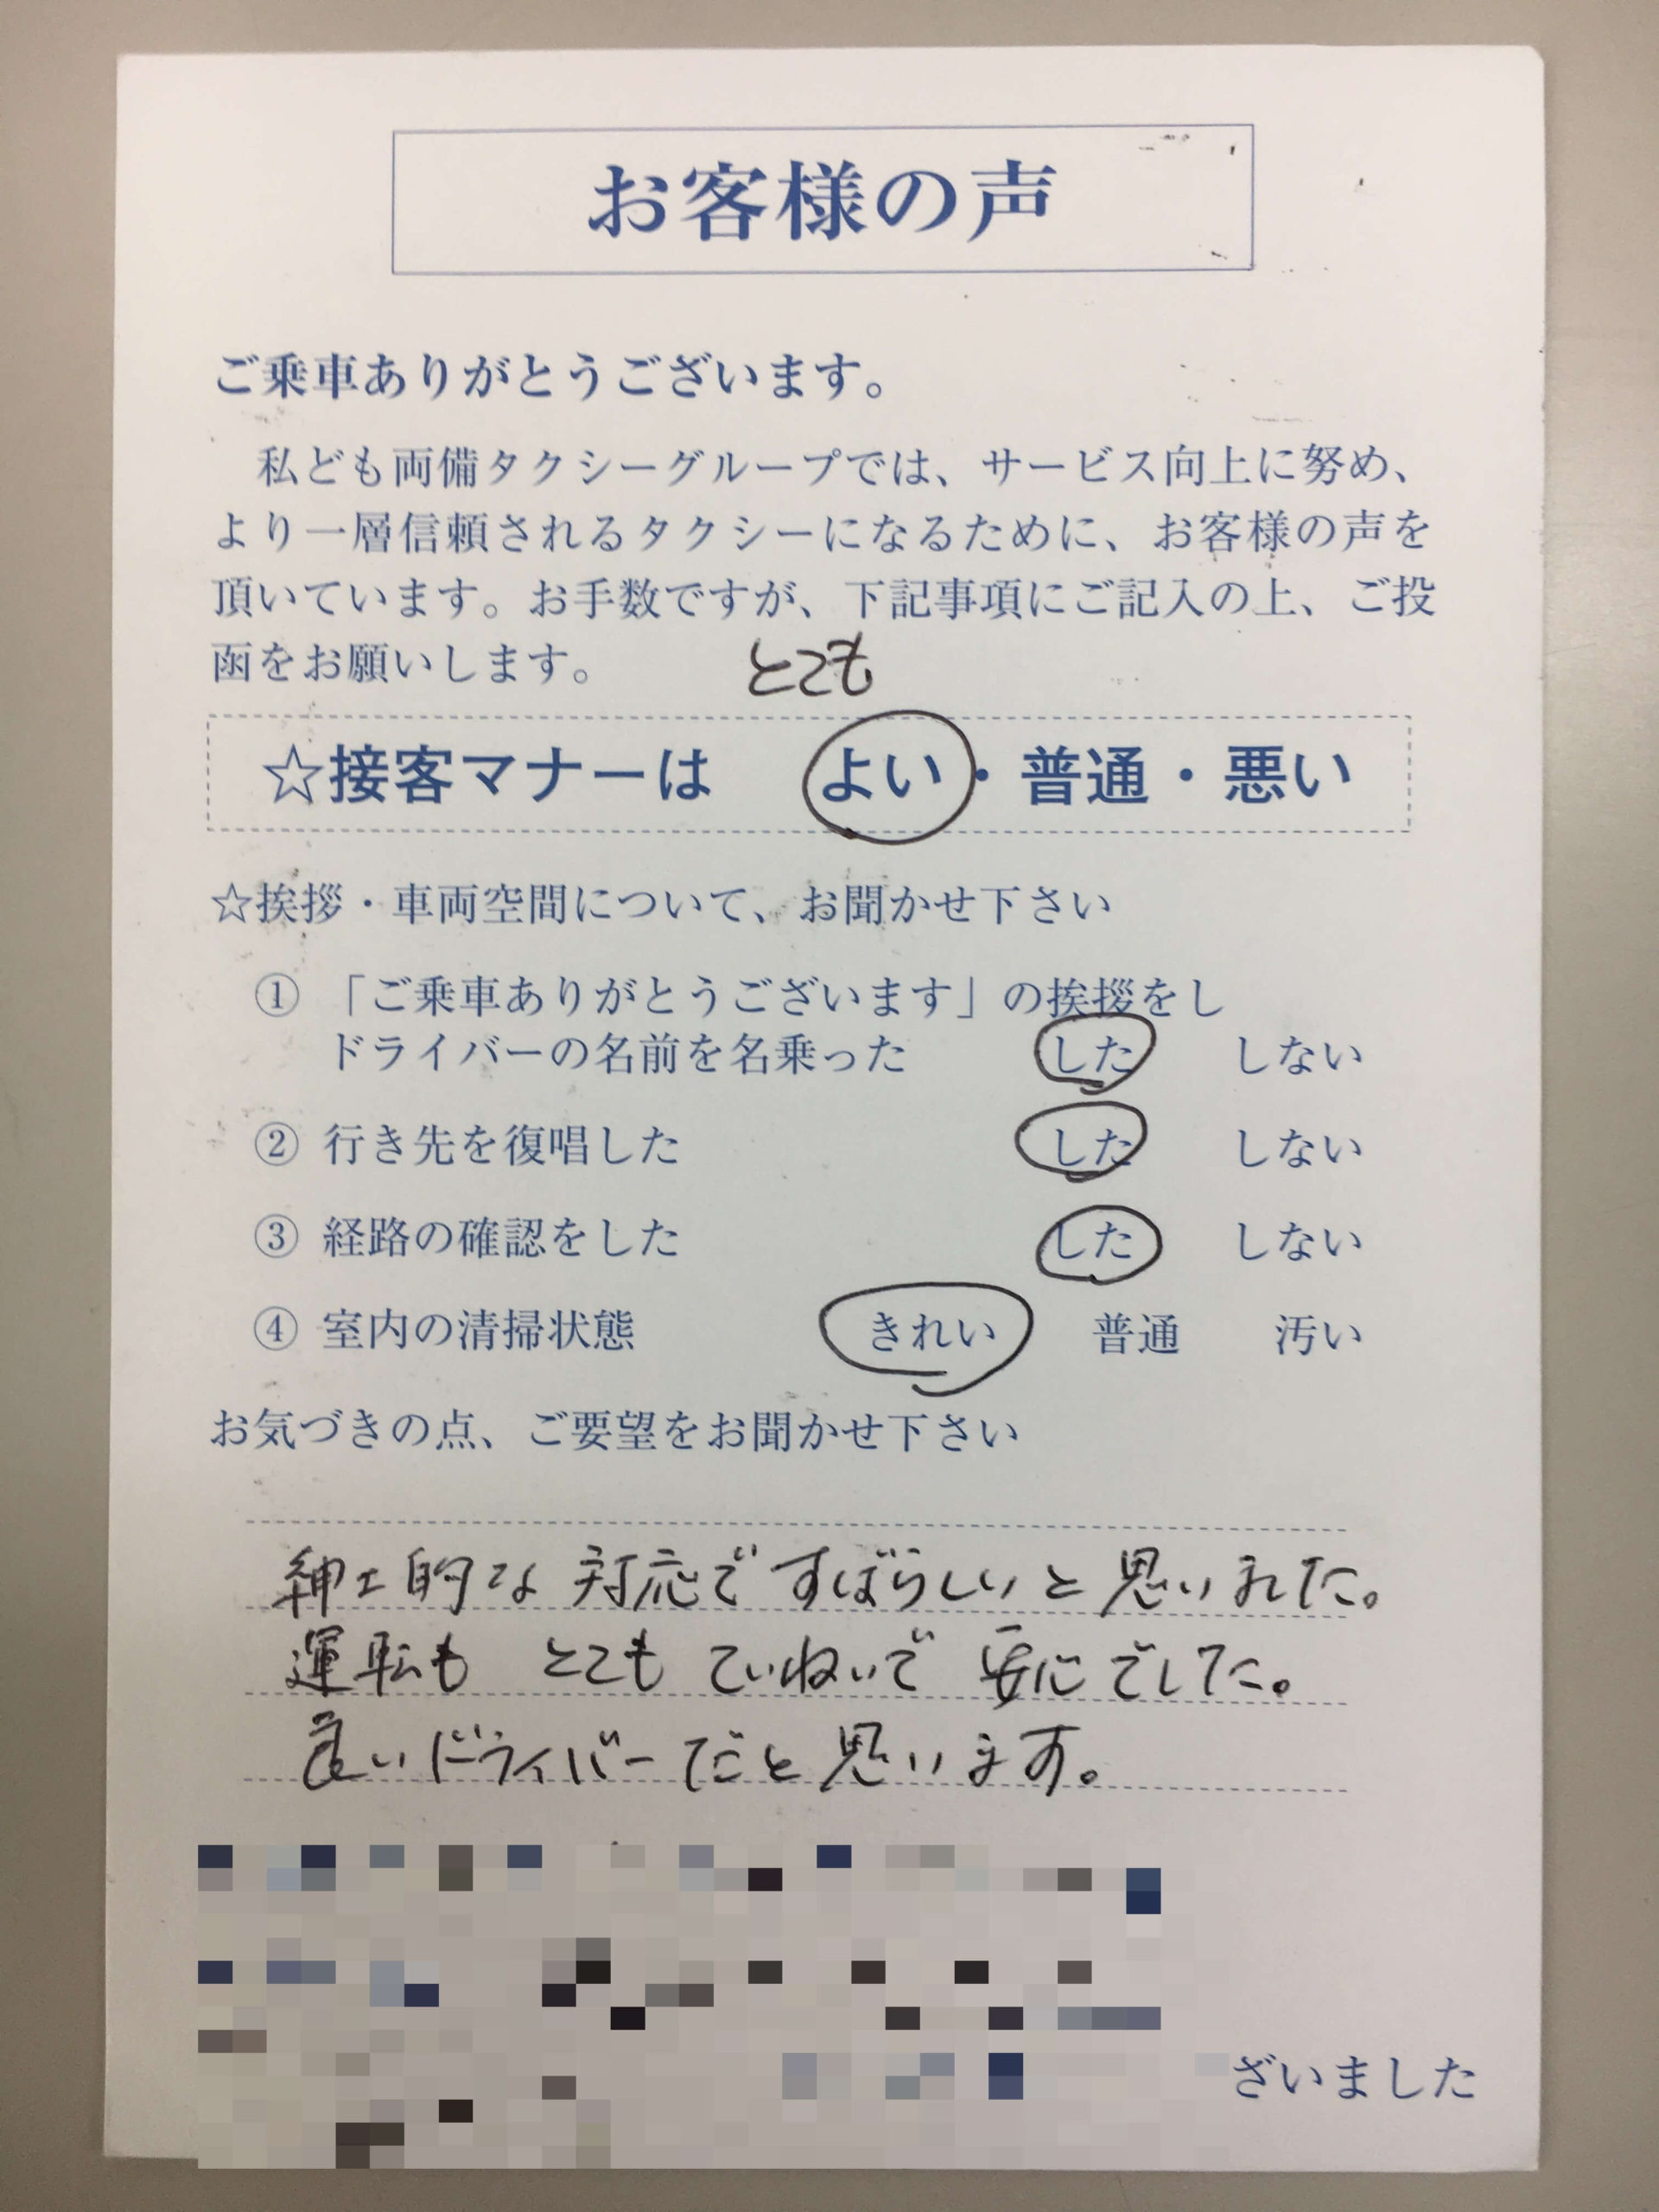 お客様の声
ご乗車ありがとうございます。
私ども両備タクシーグループでは、サービス向上に努め、
より一層信頼されるタクシーになるために、お客様の声を
頂いています。お手数ですが、下記事項にご記入の上、ご投
函をお願いします。
とても
☆接客マナーは よい・普通・悪い
☆挨拶・車両空間について、お聞かせ下さい
① 「ご乗車ありがとうございます」の挨拶をし
ドライバーの名前を名乗った した しない
② 行き先を復唱した した しない
③ 経路の確認をした した しない
④ 室内の清掃状態 きれい 普通 汚い
お気づきの点、ご要望をお聞かせ下さい
紳士的な対応ですばらしいと思いました。
運転も とても ていねいで 安心でした。
良いドライバーだと思います。
ざいました